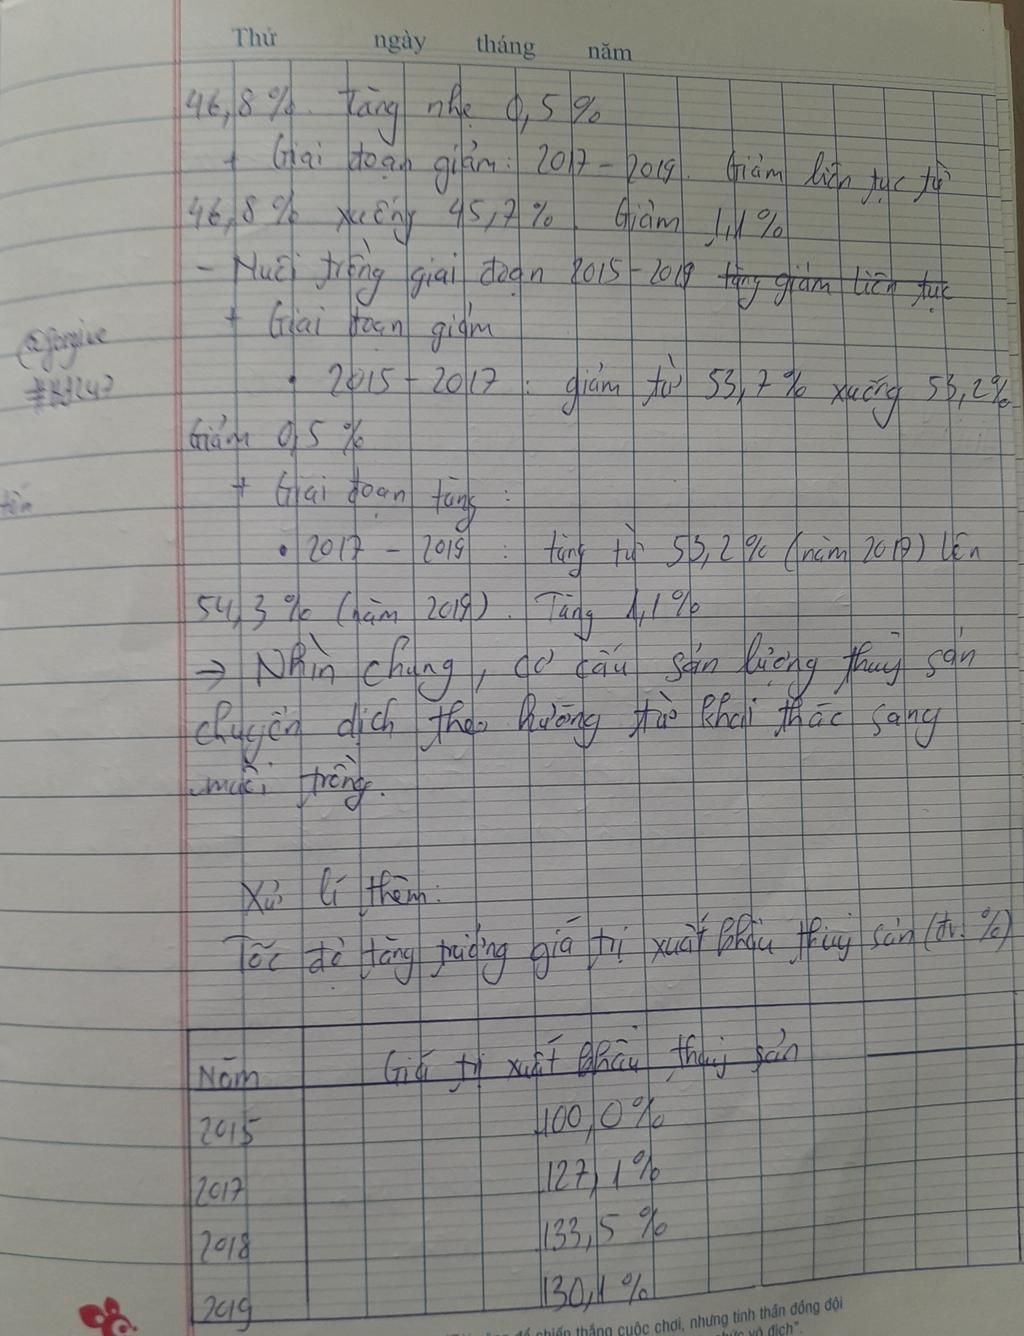 Thứ ngày tháng năm
46,8%. Tăng nhẹ 0,5%
+ Giai đoạn giảm: 2017 - 2019. Giảm liên tục từ
46,8% xuống 45,7%. Giảm 1,1%
- Nuôi trồng giai đoạn 2015 - 2019 tăng giảm liên tục
+ Giai đoạn giảm
• 2015 - 2017 : giảm từ 53,7% xuống 53,2%
Giảm 0,5%
+ Giai đoạn tăng :
• 2017 - 2019 : tăng từ 53,2% (năm 2017) lên
54,3% (năm 2019). Tăng 1,1%
→ Nhìn chung, cơ cấu sản lượng thuỷ sản
chuyển dịch theo hướng từ khai thác sang
nuôi trồng.
Xử lí thêm:
Tốc độ tăng trưởng giá trị xuất khẩu thuỷ sản (đv: %)
Năm Giá trị xuất khẩu thuỷ sản
2015 100,0%
2017 127,1%
2018 133,5%
2019 130,1%
chiến thắng cuộc chơi, nhưng tinh thần đồng đội
vô địch".